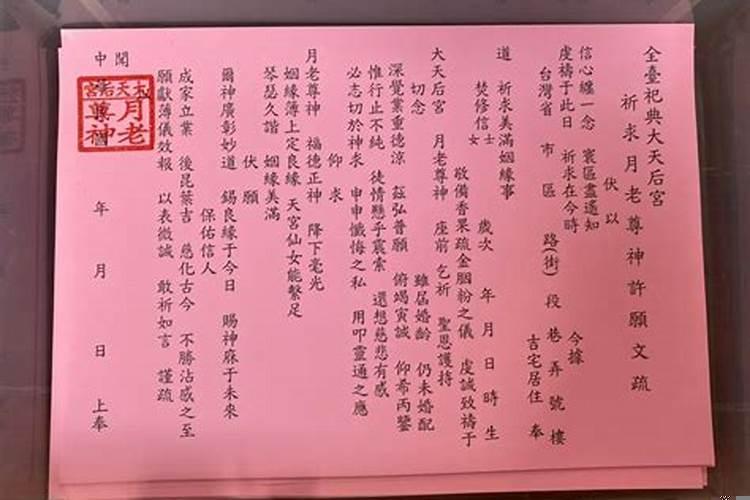 全臺祀典大天后宮
祈求月老尊神許願文疏
伏以
信心纔一念　寰區盡遙知
虔禱于此日　祈求在今時
今據
台灣省　市　區　路(街)　段　巷　弄　號　樓
吉宅居住　奉
道　祈求美滿姻緣事
焚修信士女　歲次　年　月　日　時　生
敬備香果疏金胭粉之儀　虔誠致禱于
大天后宮　月老尊神　座前　乞祈　聖恩護持
切念　雖屆婚齡　仍未婚配
深覺業重德涼　茲弘普願　俯竭寅誠　仰希丙鑒
惟行止不純　徒情懸乎震索　還想慈悲有感
必志切於神求　申申懺悔之私　用叩靈通之應
仰求
月老尊神　福德正神　降下毫光
姻緣簿上定良緣　天宮仙女能繫足
琴瑟久諧　姻緣美滿
伏願
爾神廣彰妙道　錫良緣于今日　賜神庥于未來
保佑信人
成家立業　後昆葉吉　慈化古今　不勝沾感之至
願獻薄儀效報　以表微誠　敢祈如言　謹疏
聞
中　年　月　日　上奉
大天后宮
月老
尊神